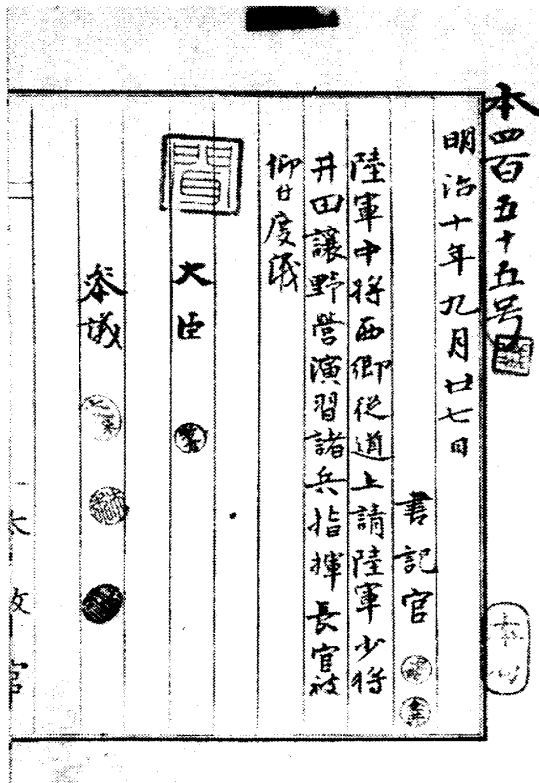 本四百五十五号
明治十年九月廿七日
書記官
陸軍中将西郷従道上請陸軍少将
井田譲野営演習諸兵指揮長官被
仰付度儀
大臣
参議
太政官